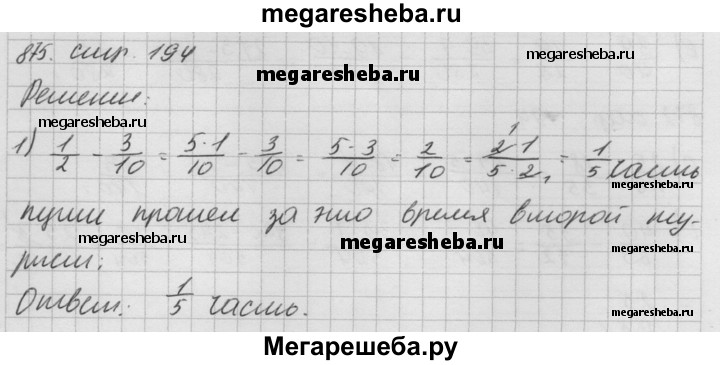 megaresheba.ru
875. стр. 194
megaresheba.ru
Решение:
megaresheba.ru
1) 1/2 - 3/10 = 5·1/10 - 3/10 = 5-3/10 = 2/10 = 2·1/5·2 = 1/5 часть
megaresheba.ru
пути прошел за это время второй ту-
megaresheba.ru megaresheba.ru megaresheba.ru
рист;
Ответ: 1/5 часть.
megaresheba.ru
Мегарешеба.ру